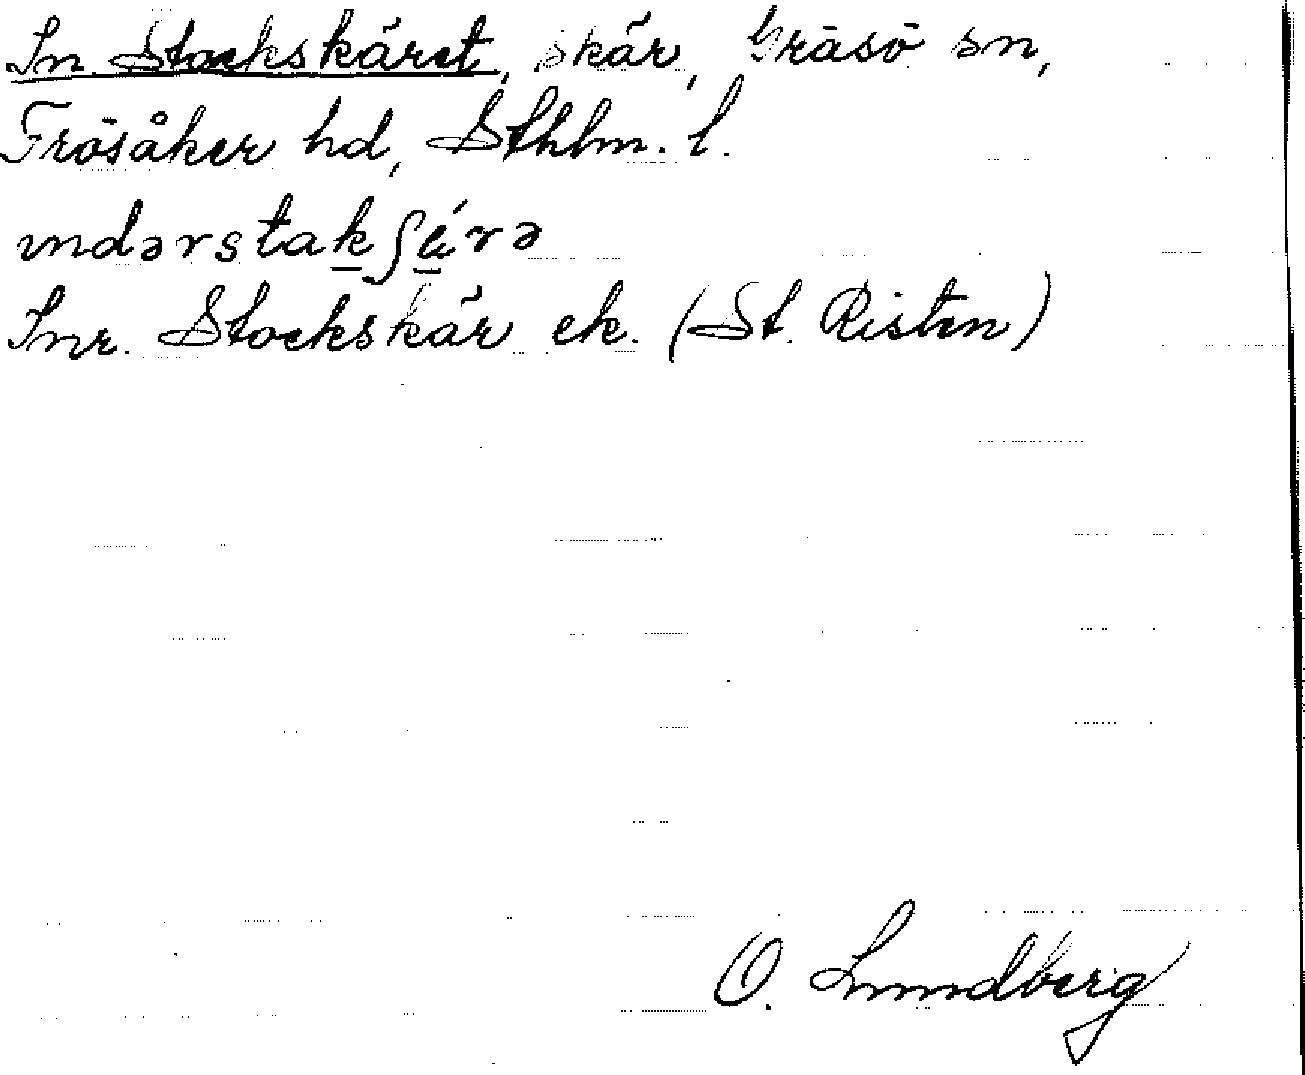 In Stockskäret, skär, Gräsö sn,
Frösåker hd, Sthlm. l.
ındərstakʃä́rə
Inr. Stockskär ek. (St. Risten)
O. Lundberg